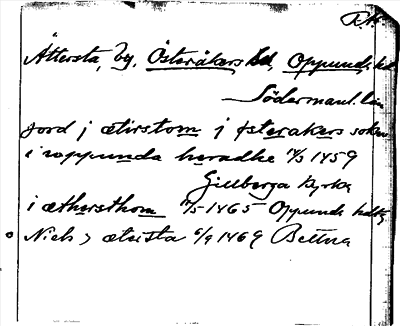 R.A.
Ättersta, by, Österåkers sd, Oppunda hd
Södermanl. län
jord j ætirstom j østerakers sokn
i woppunda heradhe 1459
Gillberga kyrka
i æthersthom 1465 Oppunda hd
Niels j ætersta 6/9 1469 Bettna